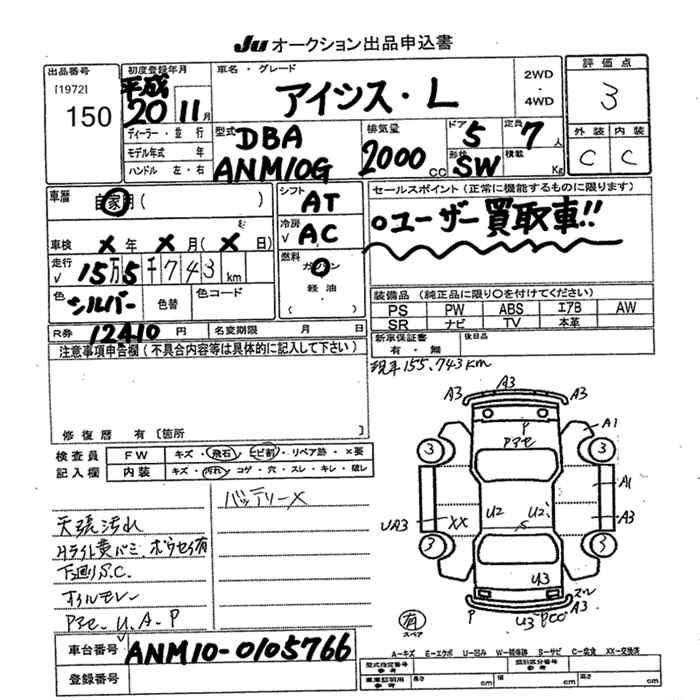 JU オークション出品申込書
出品番号
[1972]
150
初度登録年月
平成
20 11月
ディーラー・並行
モデル年式 年
ハンドル 左・右
車名・グレード
アイシス・L
2WD
・
4WD
評価点
3
外装 内装
C C
型式
DBA
ANM10G
排気量
2000 CC
ドア 5
形状 SW
定員 7 人
積載 Kg
車歴 自家用( )
車検 × 年 × 月(× 日)
走行 15万5千743 km
色 シルバー 色替 色コード
シフト AT
冷房 AC
燃料 ガソリン
軽油・
( )
セールスポイント(正常に機能するものに限ります)
○ユーザー買取車!!
装備品(純正品に限り○を付けてください)
PS PW ABS エアB AW
SR ナビ TV 本革
R券 12410 円 名変期限 月 日
新車保証書 後日品
有・無
注意事項申告欄(不具合内容等は具体的に記入して下さい)
現車155,743km
修復歴 有[箇所
検査員 FW キズ・飛石・ヒビ割・リペア跡・×要
記入欄 内装 キズ・汚れ・コゲ・穴・スレ・キレ・破レ
バッテリー×
天張汚れ
Hライト黄バミ、ボウセイ有
下廻りS.C.
オイルモレ
Pアセ、U.A.P
A3 A3 A3
P
Pアセ
A1
3 3
A1
UA3 XX U2 U2 A3
S
3 3
U3
スレ
A3
P U3 PCO
有
スペア
A-キズ E-エクボ U-凹み W-補修跡 S-サビ C-腐食 XX-交換済
車台番号 ANM10-0105766
登録番号
型式指定番号 参考
類別区分番号 参考
車庫証明用 参考 長さ cm 幅 cm 高さ cm